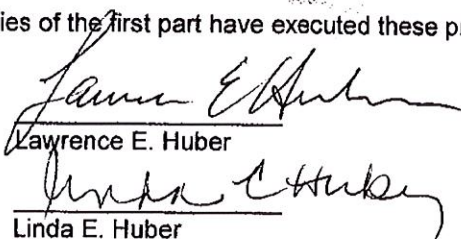 ies of the first part have executed these p
Lawrence E. Huber
Lawrence E. Huber
Linda E Huber
Linda E. Huber